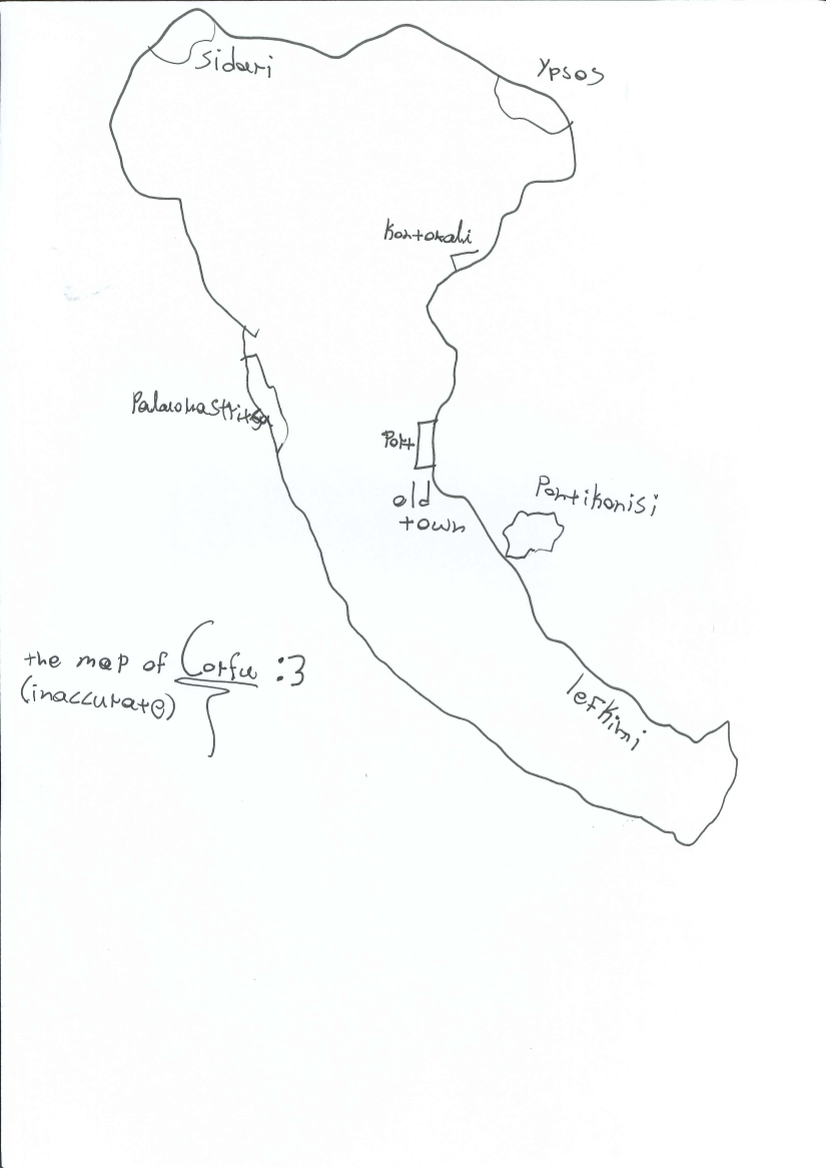 Sidari
Ypsos
Kontokali
Palaiokastritsa
Port
old
town
Pontikonisi
the map of Corfu :3
(inaccurate)
lefkimi